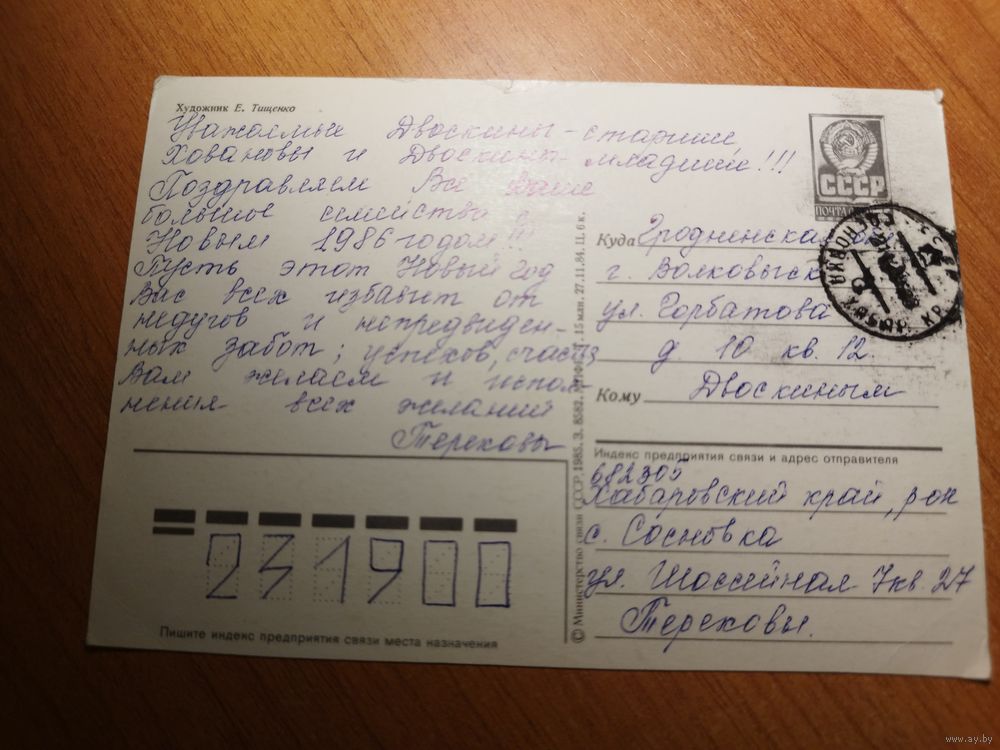 Художник Е. Тищенко
Уважаемые Двоскины-старшие,
Ховановы и Двоскины-младшие!!!
Поздравляем Все Ваше
большое семейство с
Новым 1986 годом!!!
Пусть этот Новый год
Вас всех избавит от
недугов и непредвиден-
ных забот; успехов, счастья
Вам желаем и испол-
нения всех желаний
Тереховы
231900
Пишите индекс предприятия связи места назначения
© Министерство связи СССР, 1985. З. 8582. 15 млн. 27.11.84. Ц. 6 к.
СССР
ПОЧТА
Куда Гродненская
г. Волковыск
ул. Горбатова
д. 10 кв. 12
Кому Двоскиным
Индекс предприятия связи и адрес отправителя
682305
Хабаровский край, р-он
с. Сосновка
ул. Шоссейная 7 кв. 27
Тереховы.
www.ay.by